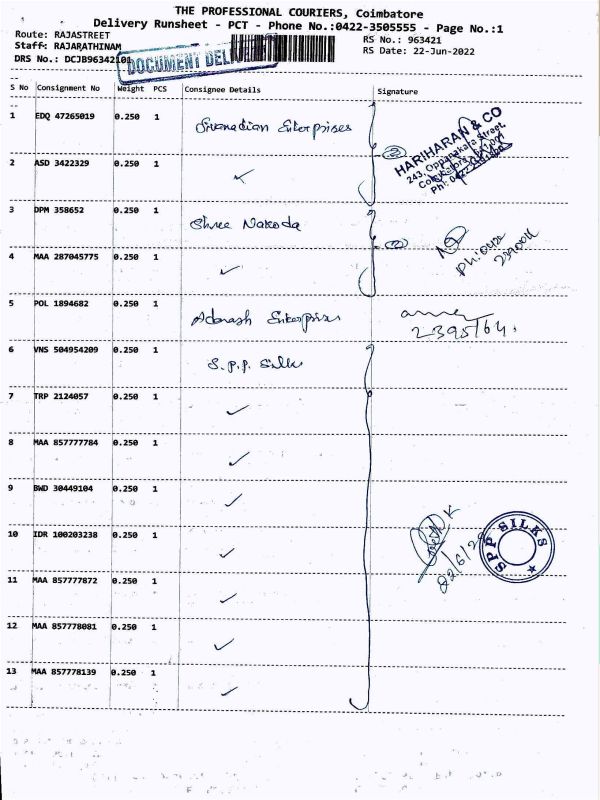 THE PROFESSIONAL COURIERS, Coimbatore
Delivery Runsheet - PCT - Phone No.:0422-3505555 - Page No.:1
Route: RAJASTREET
RS No.: 963421
Staff: RAJARATHINAM
RS Date: 22-Jun-2022
DRS No.: DCJB96342101
DOCUMENT DELIVERY
S No Consignment No Weight PCS Consignee Details Signature
1 EDQ 47265019 0.250 1 Enterprises
HARIHARAN & CO
243, Oppanakara Street,
2 ASD 3422329 0.250 1
3 DPM 358652 0.250 1 Shree Nakoda
4 MAA 287045775 0.250 1
5 POL 1894682 0.250 1 Adarash Enterprises
6 VNS 504954209 0.250 1 S.P.P. Silks
7 TRP 2124057 0.250 1
8 MAA 857777784 0.250 1
9 BWD 30449104 0.250 1
10 IDR 100203238 0.250 1
SPP SILKS
11 MAA 857777872 0.250 1
12 MAA 857778081 0.250 1
13 MAA 857778139 0.250 1